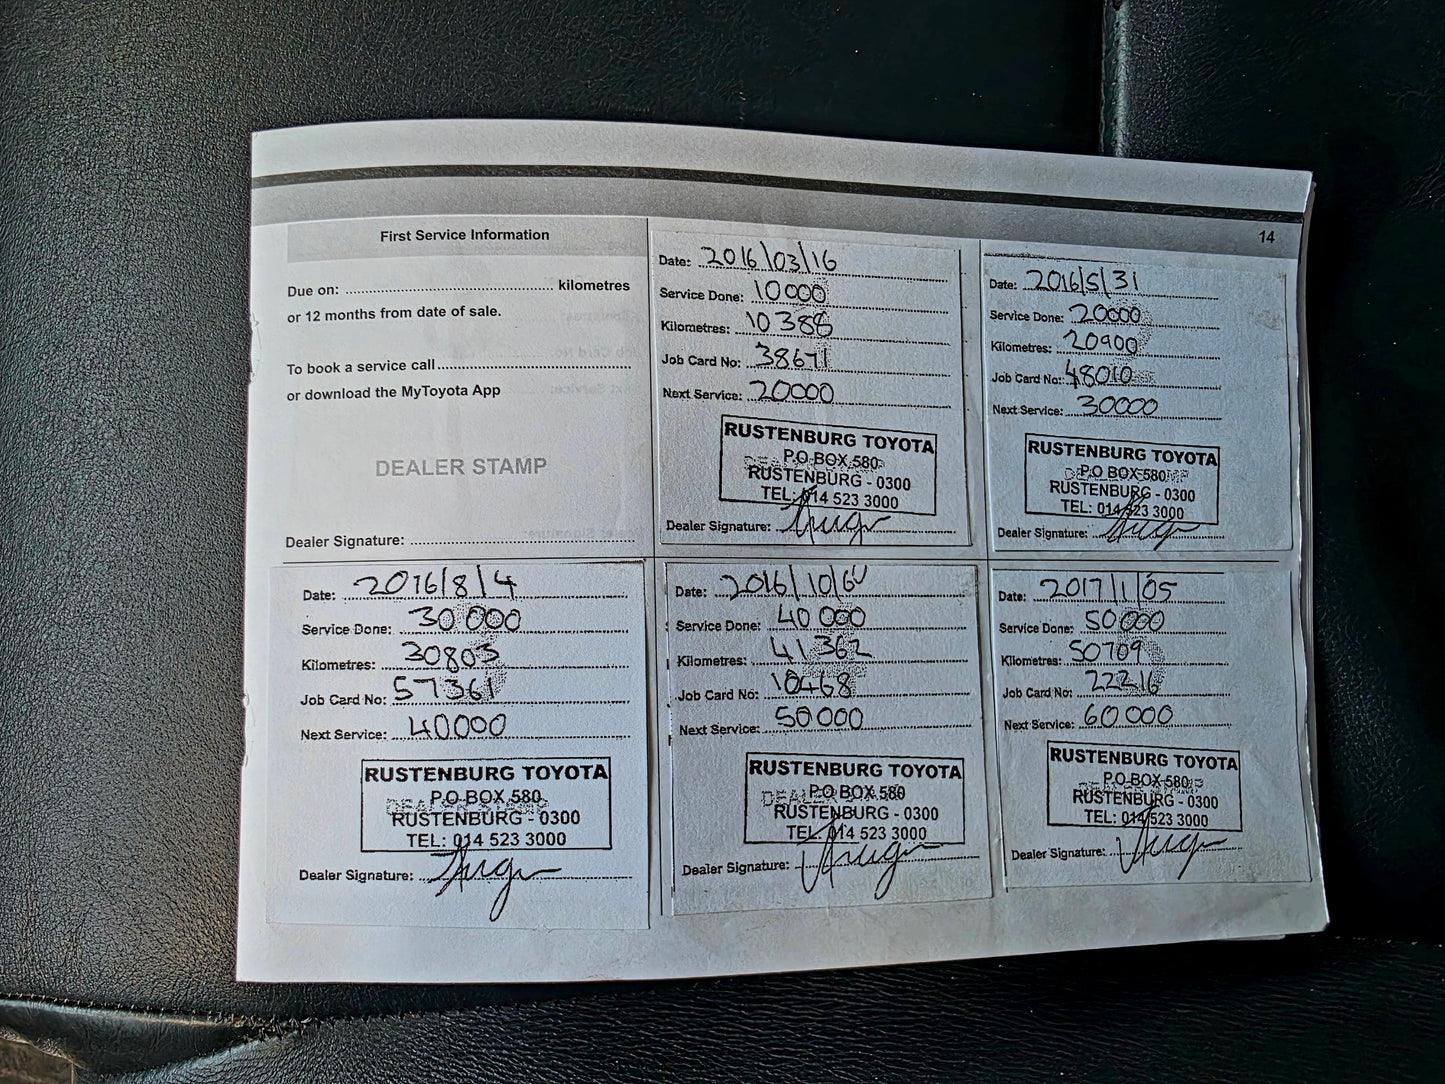 14
First Service Information
Due on: ........ kilometres
or 12 months from date of sale.
To book a service call........
or download the MyToyota App
DEALER STAMP
Dealer Signature: ........
Date: 2016/03/16
Service Done: 10000
Kilometres: 10388
Job Card No: 38671
Next Service: 20000
RUSTENBURG TOYOTA
P.O BOX 580
RUSTENBURG - 0300
TEL: 014 523 3000
Dealer Signature:
Date: 2016/5/31
Service Done: 20000
Kilometres: 20900
Job Card No: 48010
Next Service: 30000
RUSTENBURG TOYOTA
P.O BOX 580
RUSTENBURG - 0300
TEL: 014 523 3000
Dealer Signature:
Date: 2016/8/4
Service Done: 30000
Kilometres: 30803
Job Card No: 57361
Next Service: 40000
RUSTENBURG TOYOTA
P.O BOX 580
RUSTENBURG - 0300
TEL: 014 523 3000
Dealer Signature:
Date: 2016/10/
Service Done: 40000
Kilometres: 41362
Job Card No: 10468
Next Service: 50000
RUSTENBURG TOYOTA
P.O BOX 580
RUSTENBURG - 0300
TEL: 014 523 3000
Dealer Signature:
Date: 2017/1/05
Service Done: 50000
Kilometres: 50709
Job Card No: 22216
Next Service: 60000
RUSTENBURG TOYOTA
P.O BOX 580
RUSTENBURG - 0300
TEL: 014 523 3000
Dealer Signature: